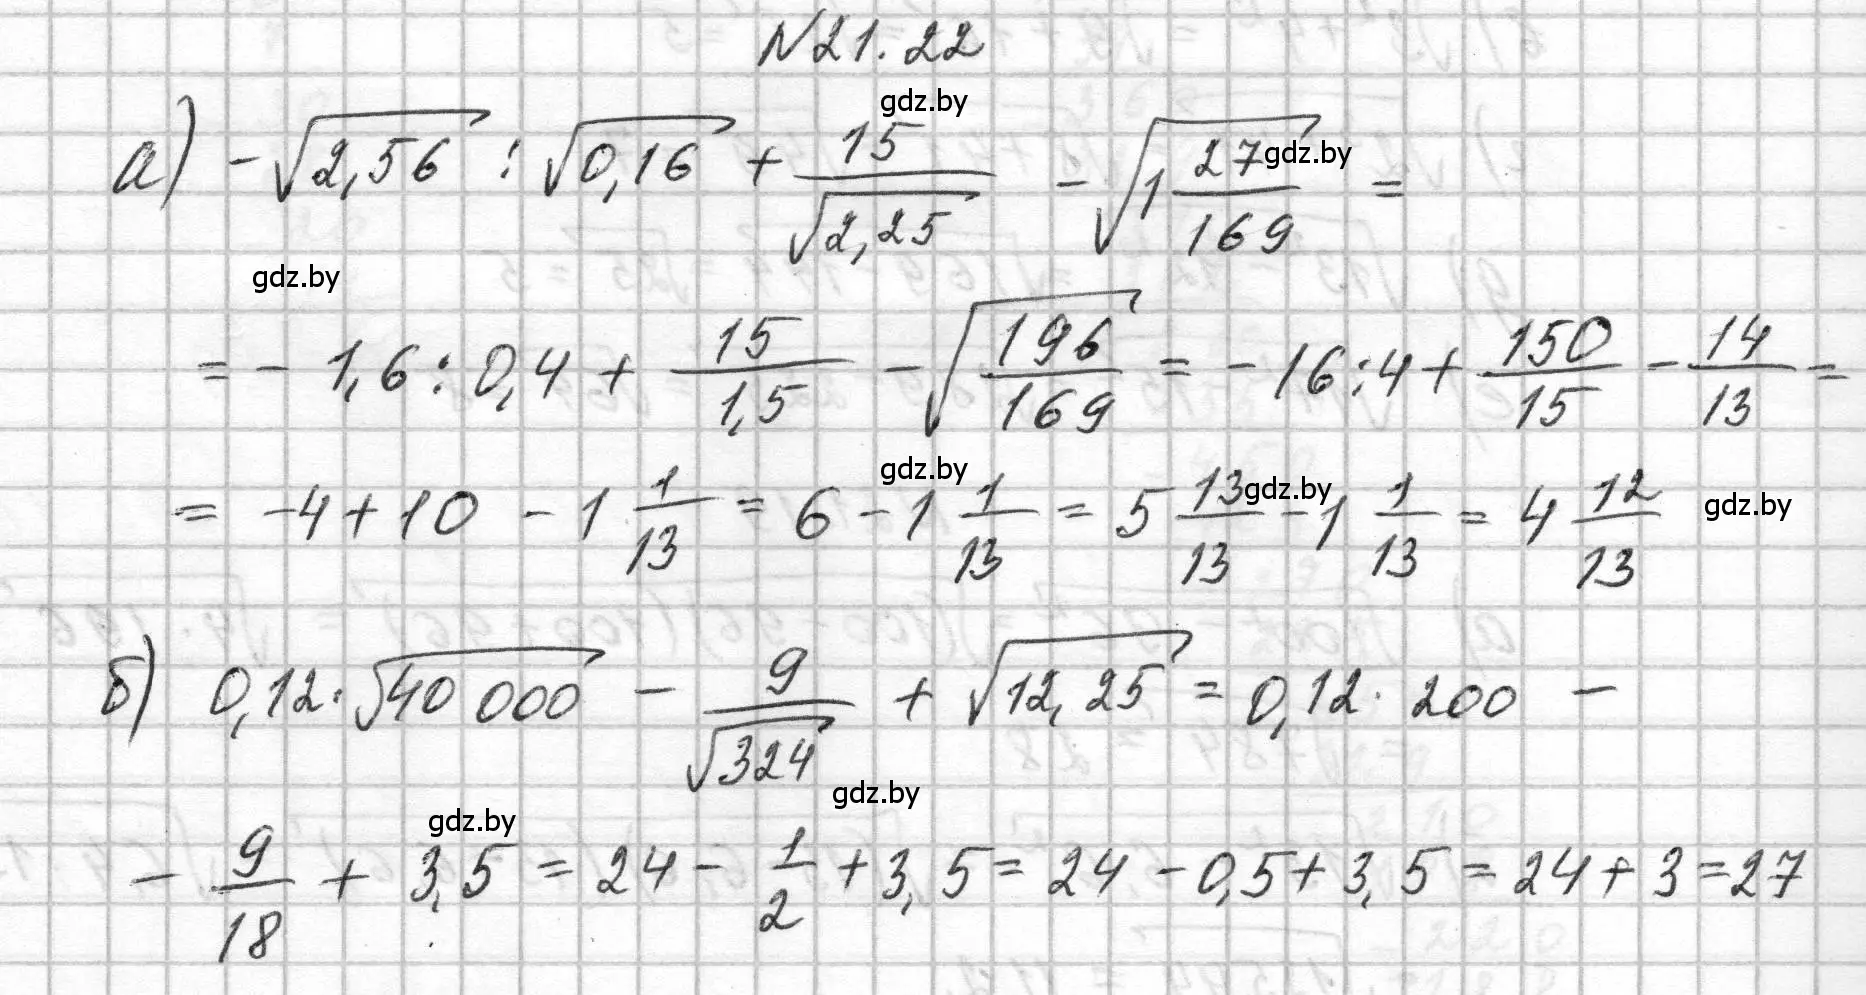 N21.22
gdz.by
а) -√2,56 : √0,16 + 15/√2,25 - √(1 27/169) =
gdz.by
gdz.by
= - 1,6 : 0,4 + 15/1,5 - √(196/169) = - 16 : 4 + 150/15 - 14/13 =
gdz.by
= -4 + 10 - 1 1/13 = 6 - 1 1/13 = 5 13/13 - 1 1/13 = 4 12/13
gdz.by
gdz.by
б) 0,12 · √40 000 - 9/√324 + √12,25 = 0,12 · 200 -
gdz.by
gdz.by
- 9/18 + 3,5 = 24 - 1/2 + 3,5 = 24 - 0,5 + 3,5 = 24 + 3 = 27